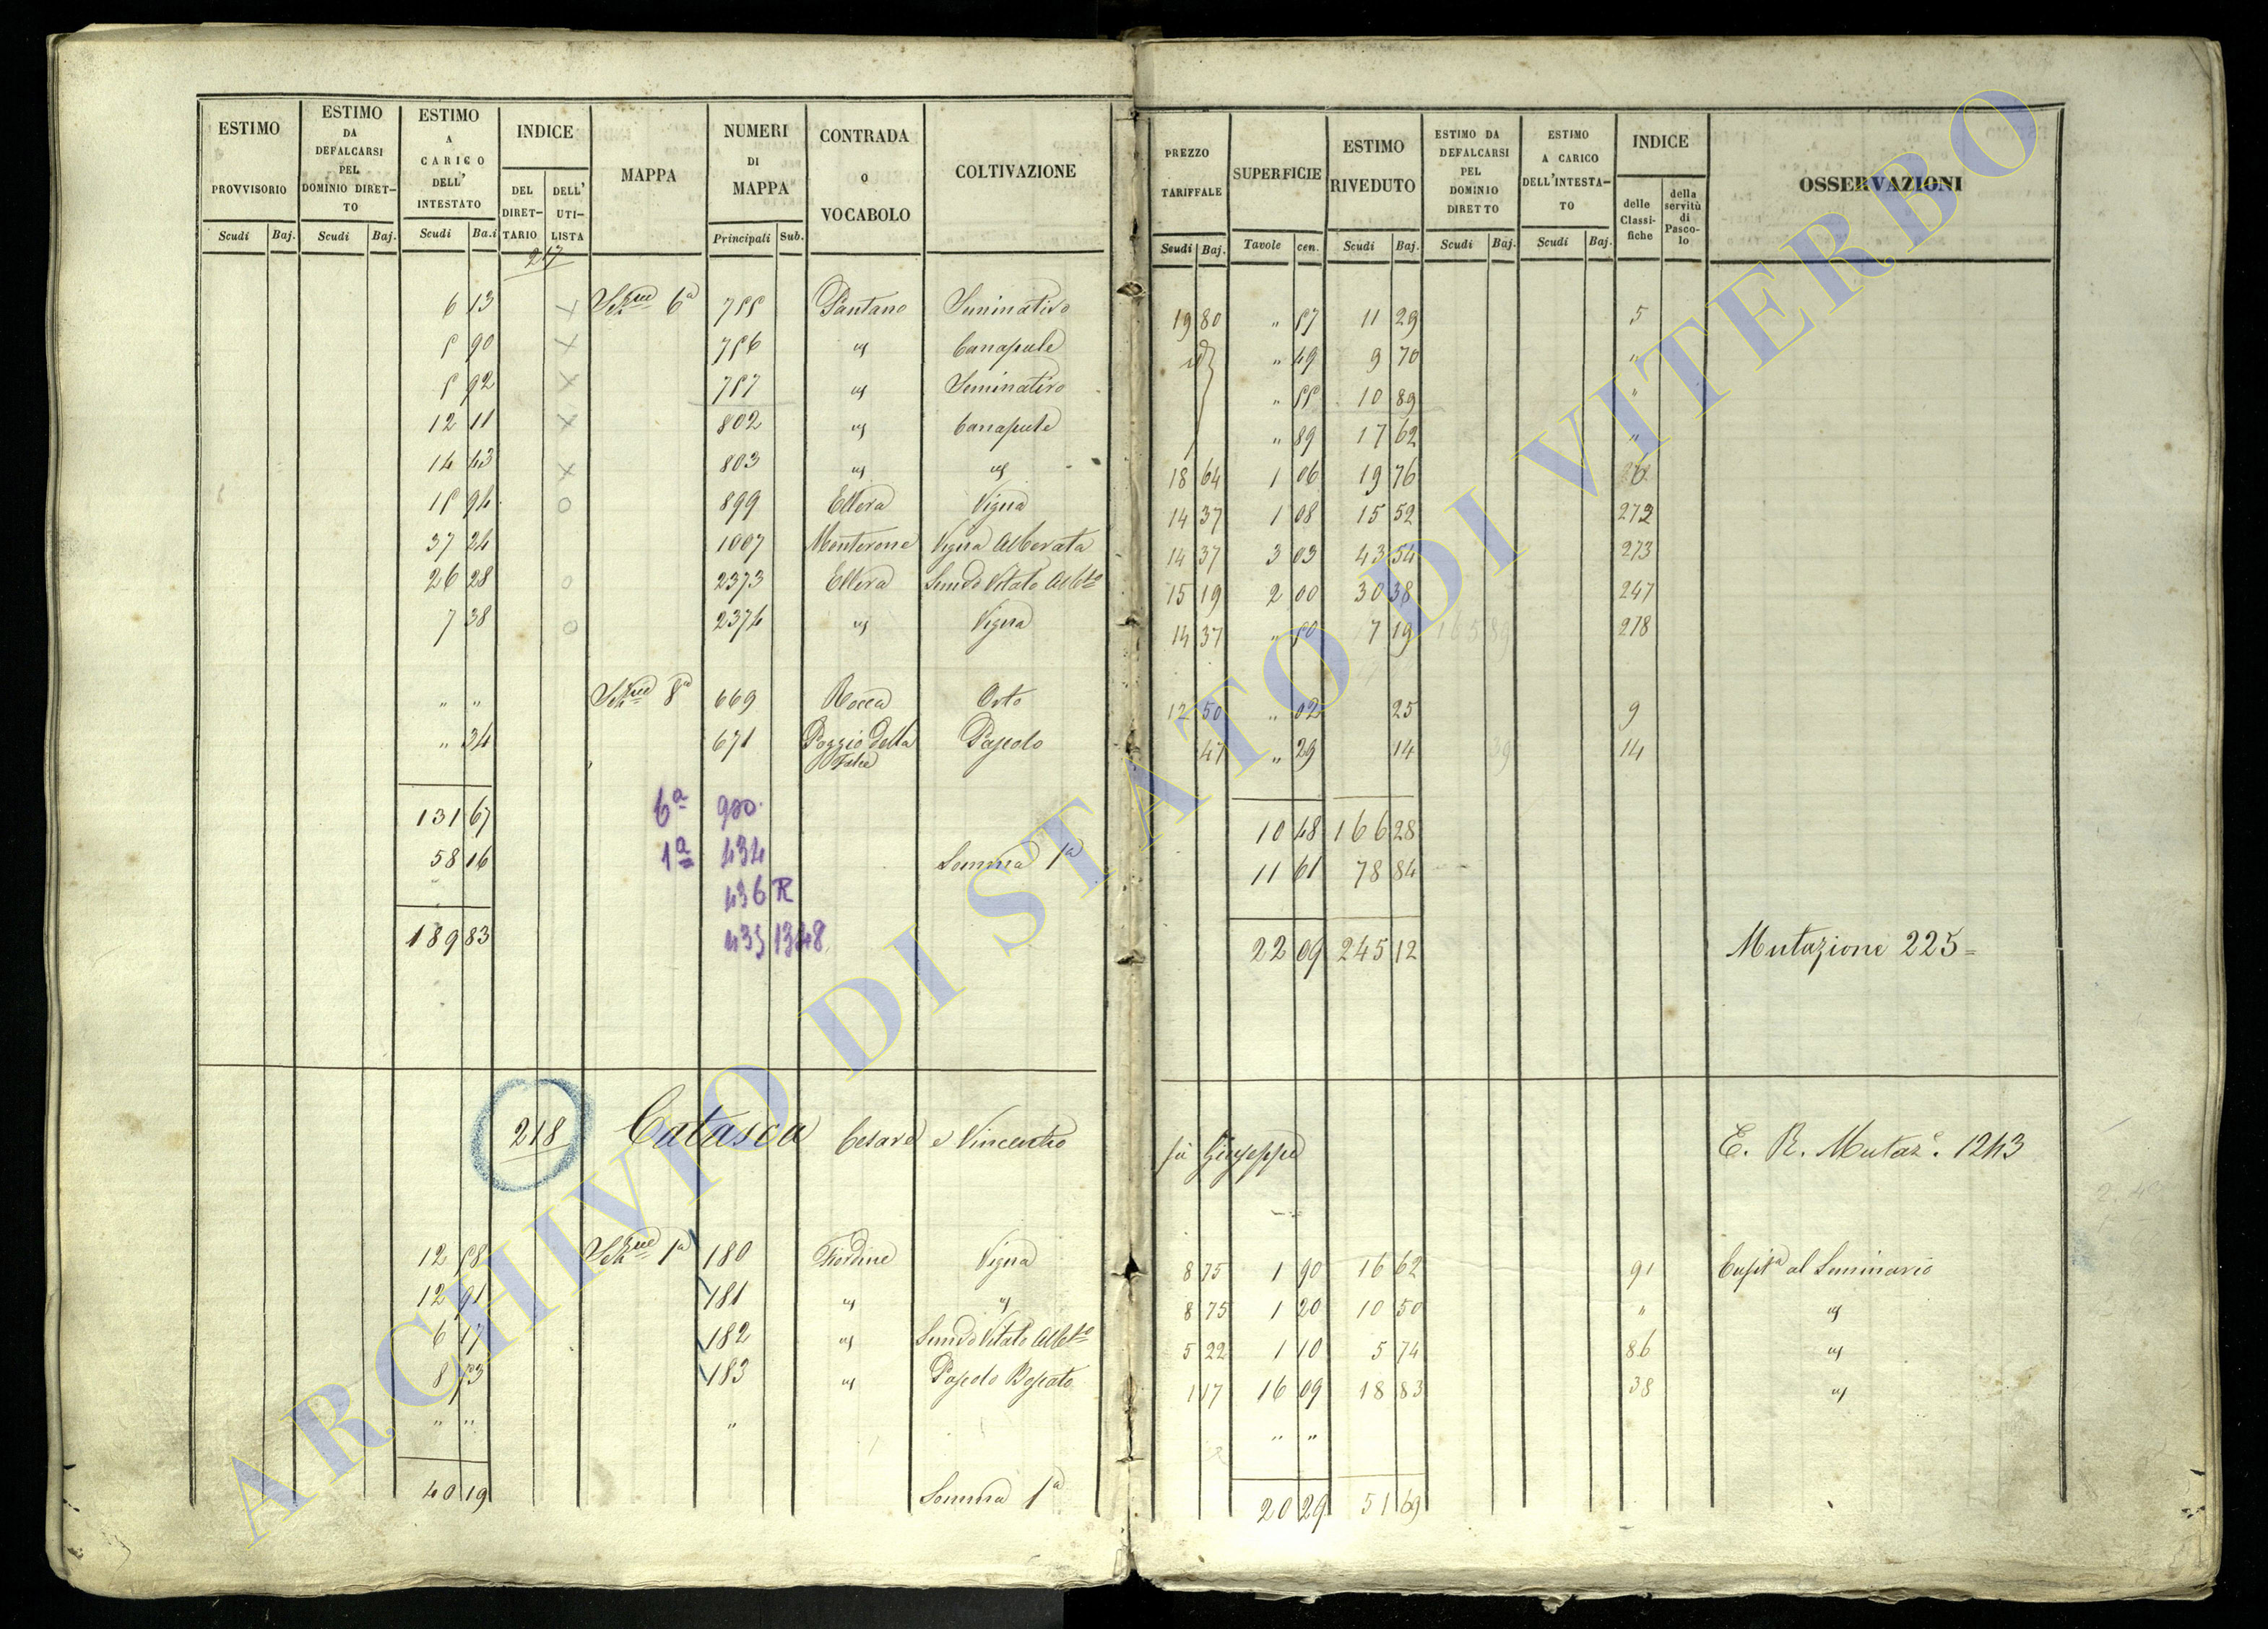 ESTIMO PROVVISORIO Scudi Baj.
ESTIMO DA DEFALCARSI PEL DOMINIO DIRET-TO Scudi Baj.
ESTIMO A CARICO DELL' INTESTATO Scudi Ba.i
INDICE DEL DIRET-TARIO DELL' UTI-LISTA
MAPPA
NUMERI DI MAPPA Principali Sub.
CONTRADA O VOCABOLO
COLTIVAZIONE
PREZZO TARIFFALE Scudi Baj.
SUPERFICIE Tavole cen.
ESTIMO RIVEDUTO Scudi Baj.
ESTIMO DA DEFALCARSI PEL DOMINIO DIRETTO Scudi Baj.
ESTIMO A CARICO DELL'INTESTA-TO Scudi Baj.
INDICE delle Classi-fiche della servitù di Pasco-lo
OSSERVAZIONI
217
6 13 X Sezne 6a 755 Pantano Seminativo 19 80 " 57 11 29 5
5 90 X 756 id Canapule id " 49 9 70 "
5 92 X 757 id Seminativo " 55 10 89 "
12 11 X 802 id Canapule " 89 17 62 "
14 43 X 803 id id 18 64 1 06 19 76
15 94 O 899 Ellera Vigna 14 37 1 08 15 52 273
37 24 1007 Monterone Vigna Alberata 14 37 3 03 43 54 273
26 28 O 2373 Ellera Semvo Vitato Albto 15 19 2 00 30 38 247
7 38 O 2374 id Vigna 14 37 " 50 7 19 165 89 278
" " Sezne 8a 669 Rocca Orto 12 50 " 02 25 9
" 34 671 Poggio della Falce Pascolo 47 " 29 14 39 14
131 67 6a 900 10 48 166 28
58 16 1a 434 Somma 1a 11 61 78 84
436 R
189 83 435 1348 22 09 245 12 Mutazione 225=
218 Catasca Cesare e Vincenzo fu Giuseppe E. R. Mutaze. 1243
12 58 Sezne 1a 180 Fiordine Vigna 8 75 1 90 16 62 91 Cuspta al Seminario
12 91 181 id id 8 75 1 20 10 50 " id
6 17 182 id Semvo Vitato Albto 5 22 1 10 5 74 86 id
8 53 183 id Pascolo Boscato 1 17 16 09 18 83 38 id
" " " " "
40 19 Somma 1a 20 29 51 69
ARCHIVIO DI STATO DI VITERBO